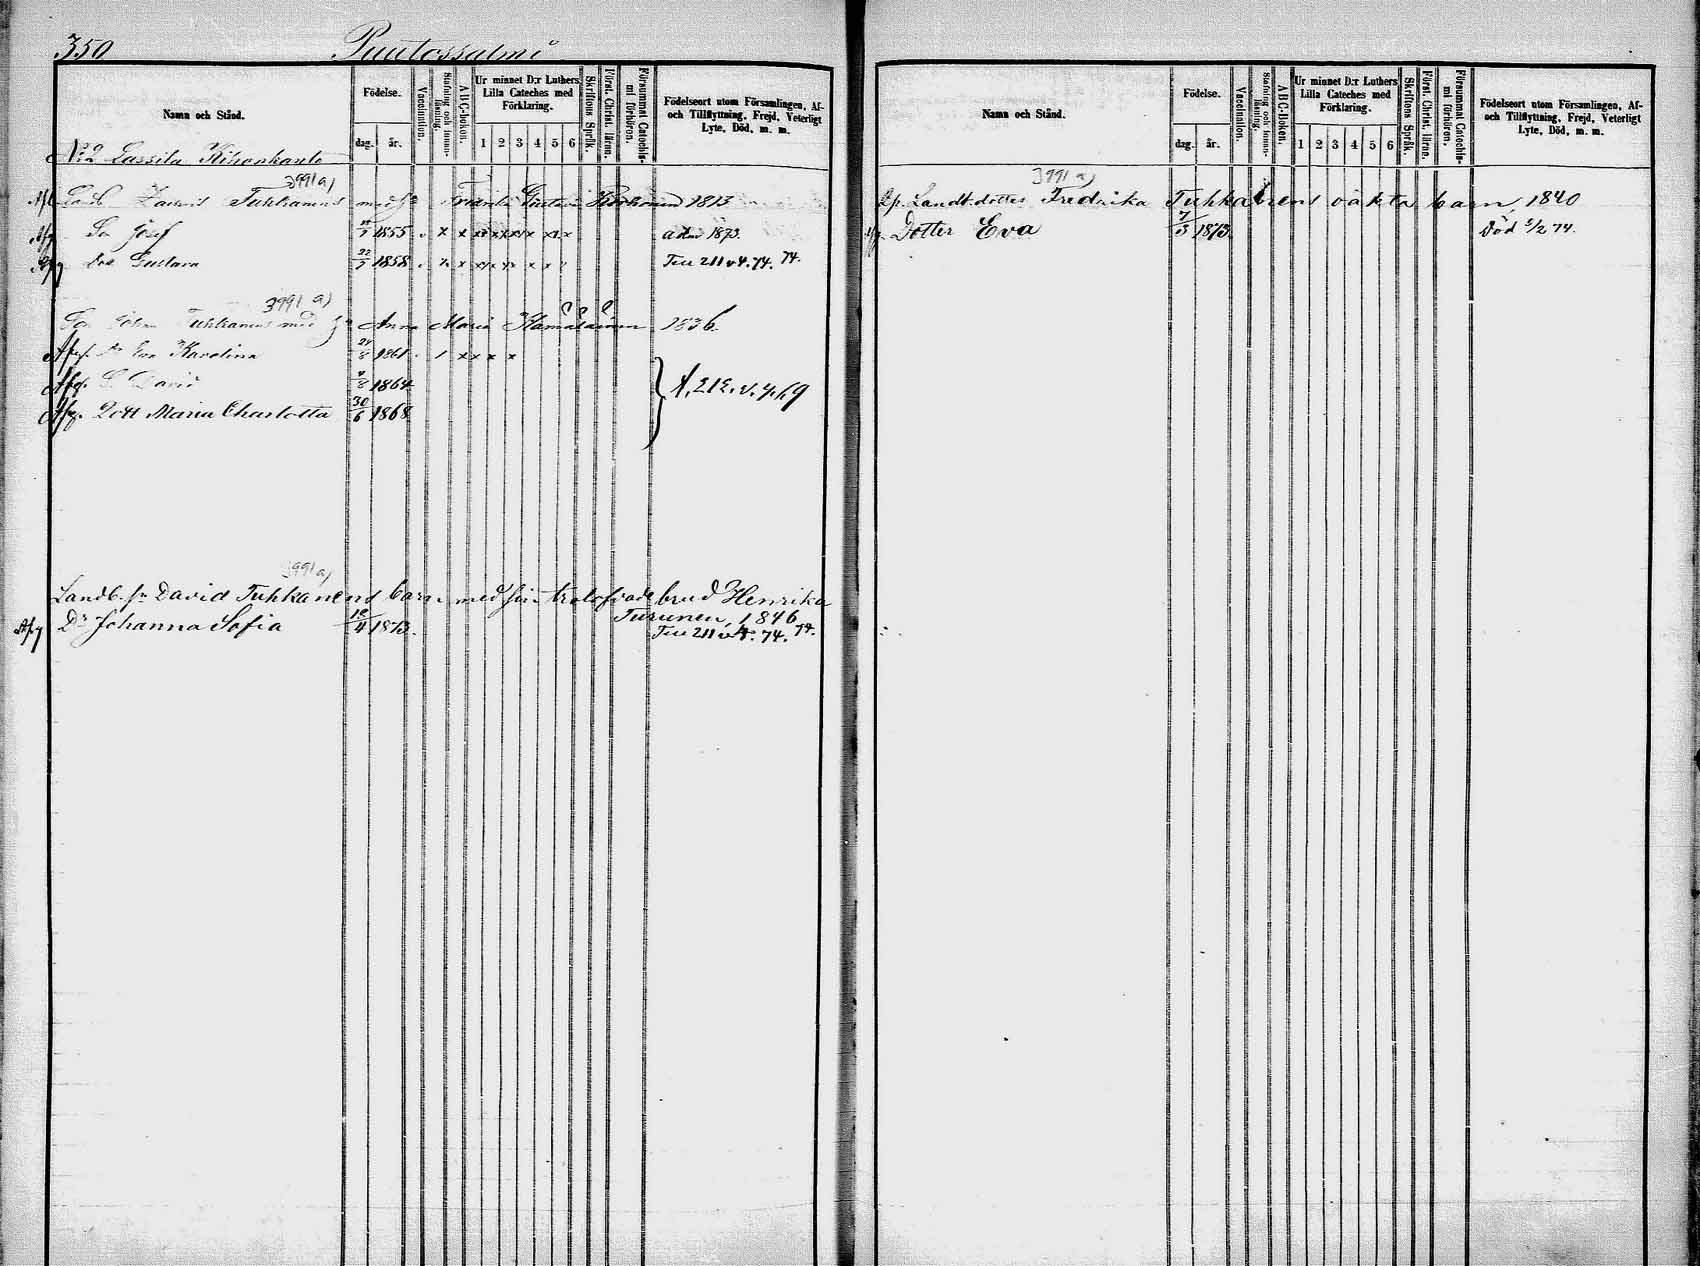 350 Puutossalmi
Namn och Stånd. Födelse. dag. år. Vaccination. Stafning och innan-läsning. A B C-boken. Ur minnet D:r Luthers Lilla Cateches med Förklaring. 1 2 3 4 5 6 Skriftens Språk. Först. Christ. läran. Försummat Catechis-mi förhören. Födelseort utom Församlingen, Af- och Tillflyttning, Frejd, Veterligt Lyte, Död, m. m.
N:o 2 Lassila
3991 a)
Landb Tuhkanens med h Gustava Korhonen 1813
Afg Son Josef 1855 adm 1873.
Afg Dott Gustava 22/5 1858 Till 211 v 4. 74. 74.
3991 a)
Son Johan Tuhkanens med h Anna Maria Hämäläinen 1836.
Afg. Dr Eva Karolina 24/8 1861
Afg. S. David 1864
Afg. Dott Maria Charlotta 30/6 1868
3991 a)
Landb. sn David Tuhkanens barn med sin trolofvade brud Henrika
Turunen, 1846
Afg Dr Johanna Sofia 12/4 1873. Till 211 v 4. 74. 74.
Namn och Stånd. Födelse. dag. år. Vaccination. Stafning och innan-läsning. A B C-Boken. Ur minnet D:r Luthers Lilla Cateches med Förklaring. 1 2 3 4 5 6 Skriftens Språk. Först. Christ. läran. Försummat Catechis-mi förhören. Födelseort utom Församlingen, Af- och Tillflyttning, Frejd, Veterligt Lyte, Död, m. m.
3991 a)
Landb. dotter Fredrika Tuhkanens oäkta barn, 1840
Dotter Eva 7/3 1873. Död 5/2 74.